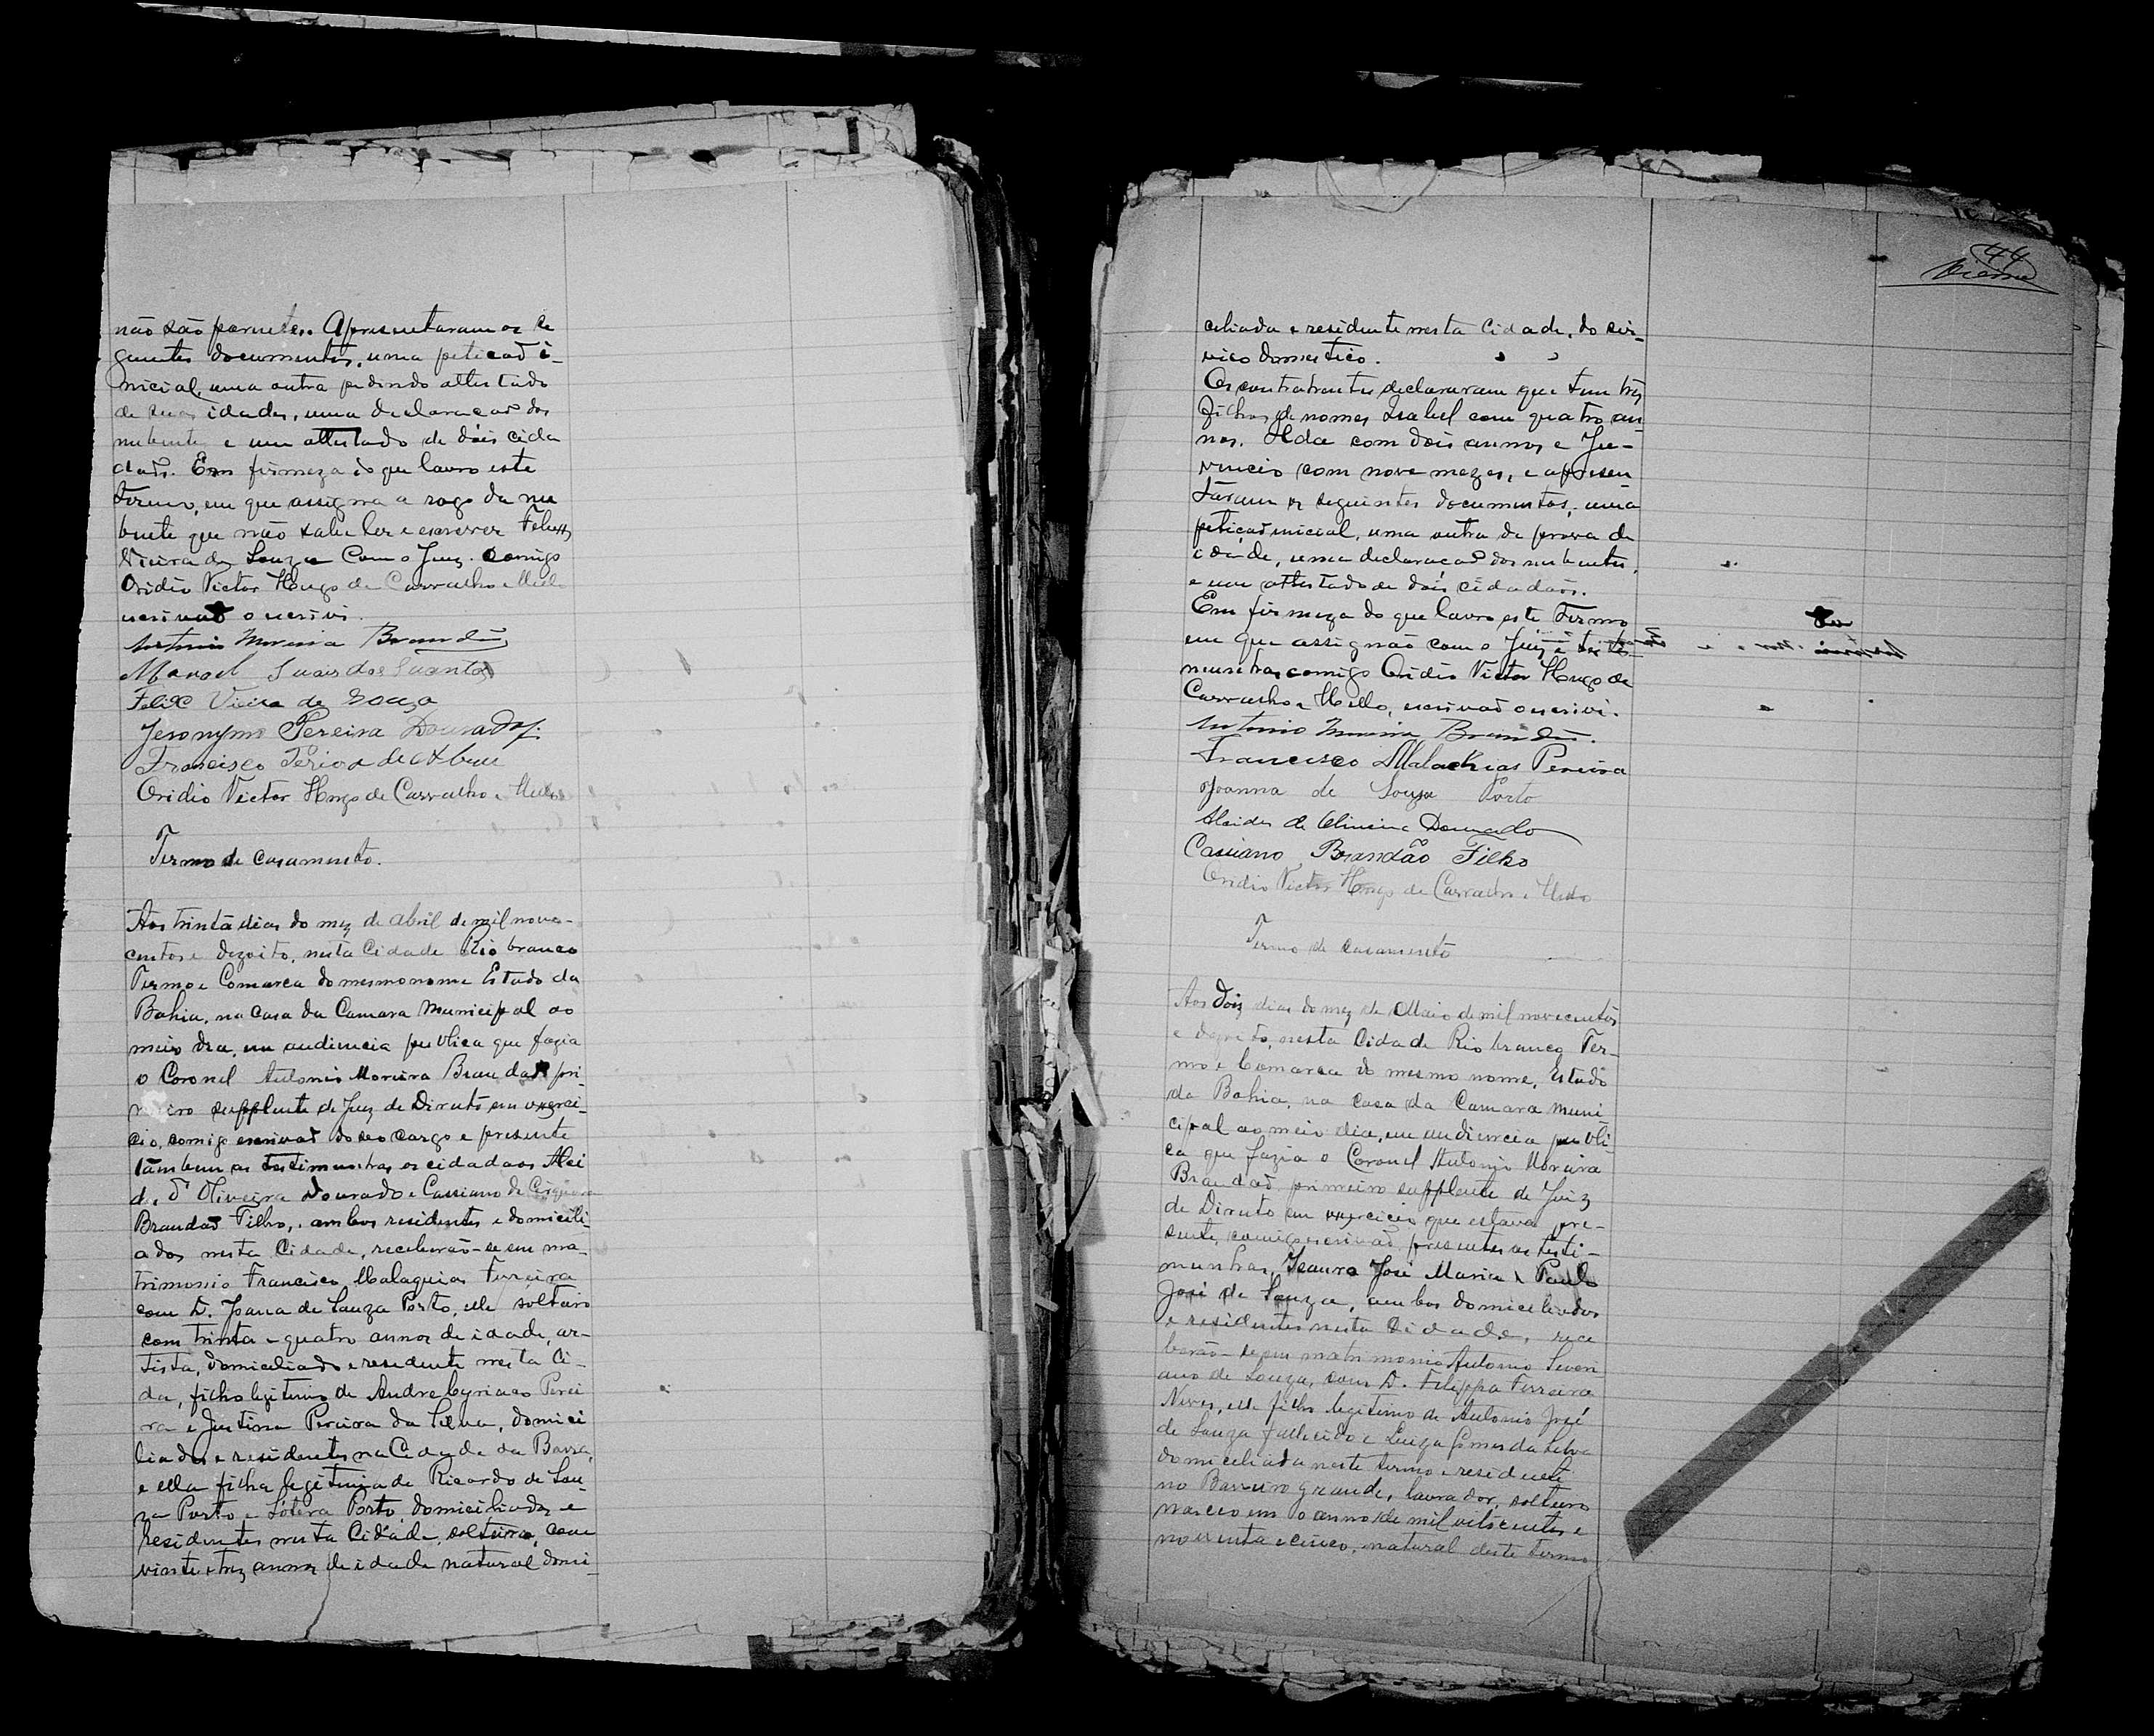 não são parentes. Apresentaram os se
guintes documentos, uma peticaõ i-
nicial, uma outra pedindo attestado
de suas idades, uma declaracaõ dos
nubente e um attestado de dois cida
daõs. Em firmeza do que lavro este
termo, em que assigna a rogo da nu
bente que não sabe ler e escrever Felix
Vieira de Souza Com o Juiz. Comigo
Ovidio Victor Hugo de Carvalho e Mello
escrivaõ o escrivi.
Antonio Moreira Brandão
Manoel Juais dos Santos
Felix Vieira de Souza
Jeronymo Pereira Dourado
Francisco de Abreu
Ovidio Victor Hugo de Carvalho e Mello
Termo de casamento.
Aos trinta dias do mez de abril de mil nove-
centos e dezoito, nesta Cidade Rio branco
Termo e Comarca do mesmo nome Estado da
Bahia, na casa da Camara Municipal ao
meio dia, em audiencia publica que fazia
o Coronel Antonio Moreira Brandaõ pri-
meiro supplente de Juiz de Direito em exerci-
cio, comigo escrivaõ do seo cargo e presente
tambem as testimunhas os cidadaos Alci
des d'Oliveira Dourado e Cassiano de Cirqueira
Brandaõ Filho, ambos residentes e domicili-
ados nesta Cidade, receberão-se em ma-
trimonio Francisco Malaquias Ferreira
com D. Joana de Souza Porto, elle solteiro
com trinta e quatro annos de idade, ar-
tista, domiciliado e residente nesta Ci-
da, filho legitimo de Andre Cyriaco Perei
ra e Justina Pereira da Silva, domici
liados e residentes na Cidade da Barra,
e ella filha legitima de Ricardo de Sou-
za Porto e Sotera Porto, domiciliados e
residentes nesta Cidade, solteira, com
vinte e trez annos de idade natural domi-
44
ciliada e residente nesta Cidade, do ser-
vico domestico.
Os contratrantes declararam que tem três
filhos de nomes Isabel com quatro an-
nos, Ilda com dois annos e Ju-
vencio com nove mezes, e apresen
táram os seguintes documentos, uma
petiçaõ inicial, uma outra de prova de
idade, uma declaracaõ dos nubentes,
e um attestado de dois cidadaõs.
Em firmeza do que lavro este Termo
em que assignão com o Juiz e as tes-
munhas, comigo Ovidio Victor Hugo de
Carvalho e Mello, escrivaõ o escrivi.
Antonio Moreira Brandão.
Francisco Malachias Pereira
Joanna de Souza Porto
Alcides de Oliveira Dourado
Cassiano Brandão Filho
Ovidio Victor Hugo de Carvalho e Mello
Termo de casamento
Aos dois dias do mez de Maio de mil novecentos
e dezoito, nesta Cidade Rio branco Ter-
mo e Comarca do mesmo nome, Estado
da Bahia, na casa da Camara Muni
cipal ao meio dia, em audiencia publi-
ca que fazia o Coronel Antonio Moreira
Brandaõ primeiro supplente de Juiz
de Direito em exercicio que estava pre-
sente, comigo escrivaõ, presentes as testi-
munhas, Isaura José Maria e Paulo
José de Souza, ambos domiciliados
e residentes nesta Cidade, rece
berão-se em matrimonio Antonio Severi
ano de Souza, com D. Filippa Ferreira
Neves, elle filho legitimo de Antonio José
de Souza fallecido e Luiza Gomes da Silva
domiciliada neste termo e residente
no Barreiro grande, lavrador, solteiro
nasceo em o anno de mil oitocentos e
noventa e cinco, natural deste termo